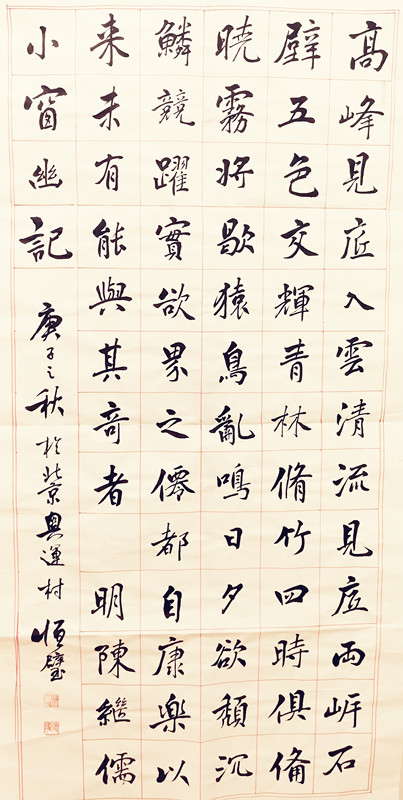 高峰見底入雲清流見底兩岸石
壁五色交輝青林脩竹四時俱備
曉霧將歇猿鳥亂鳴日夕欲頹沉
鱗競躍實欲界之僊都自康樂以
来未有能與其奇者 明陳繼儒
小窗幽記 庚子之秋於北京奧運村恒璧